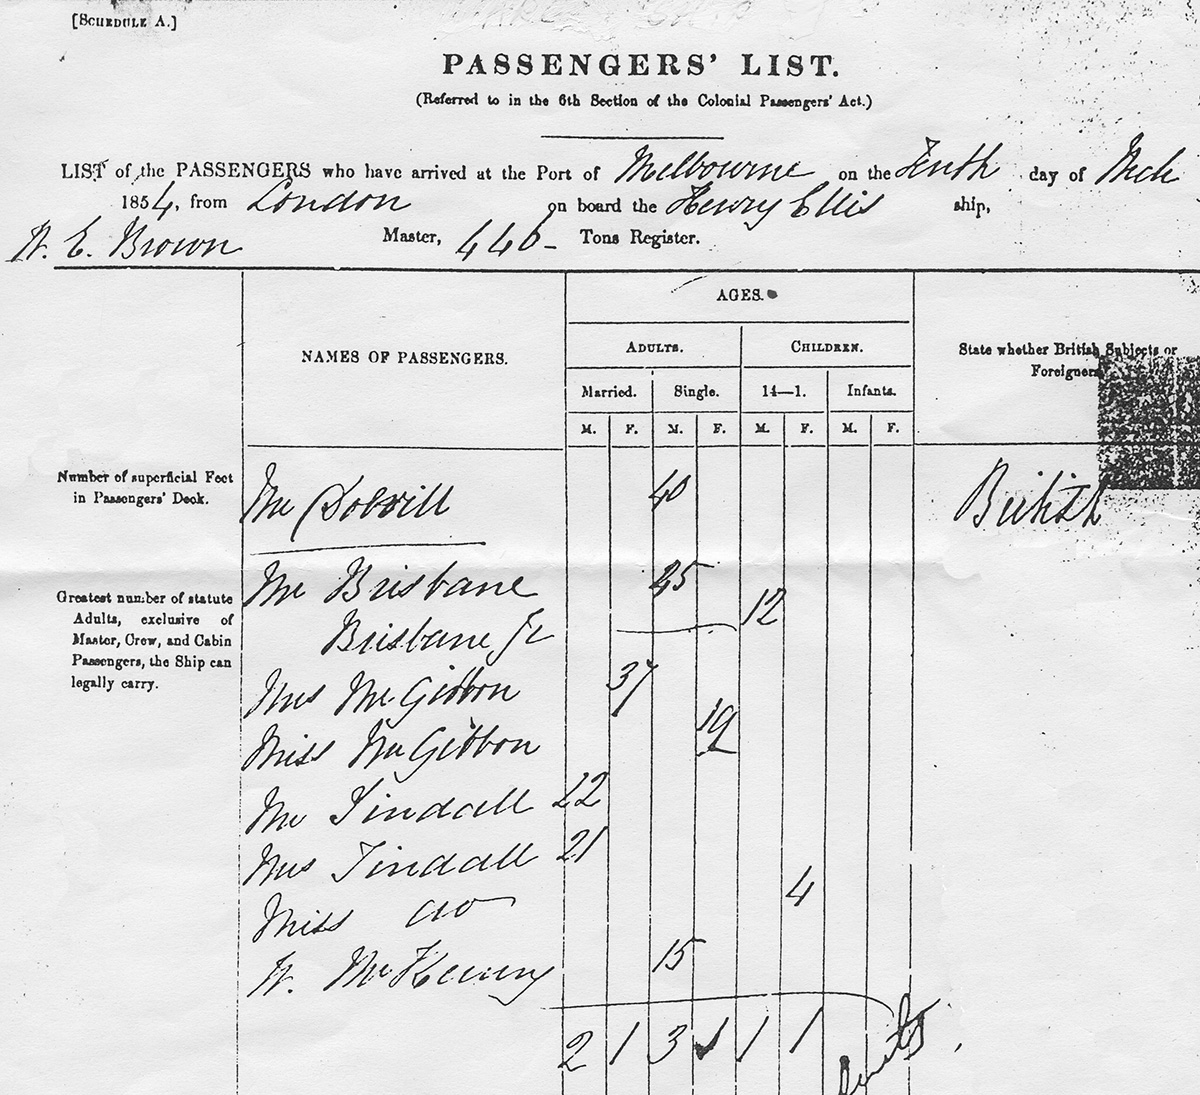 [SCHEDULE A.]
PASSENGERS' LIST.
(Referred to in the 6th Section of the Colonial Passengers' Act.)
LIST of the PASSENGERS who have arrived at the Port of Melbourne on the Tenth day of Mch
1854, from London on board the Henry Ellis ship,
W. E. Brown Master, 446- Tons Register.
AGES.
NAMES OF PASSENGERS.
ADULTS. CHILDREN.
State whether British Subjects or
Foreigners
Married. Single. 14—1. Infants.
M. F. M. F. M. F. M. F.
Number of superficial Feet
in Passengers' Deck.
Mr 40 British
Mr Brisbane 45
Greatest number of statute
Adults, exclusive of
Master, Crew, and Cabin
Passengers, the Ship can
legally carry.
Brisbane Jr 12
Mrs McGibbon 37
Miss McGibbon 19
Mr Tindall 22
Mrs Tindall 21
Miss do 4
W. McKenny 15
2 1 3 1 1 1